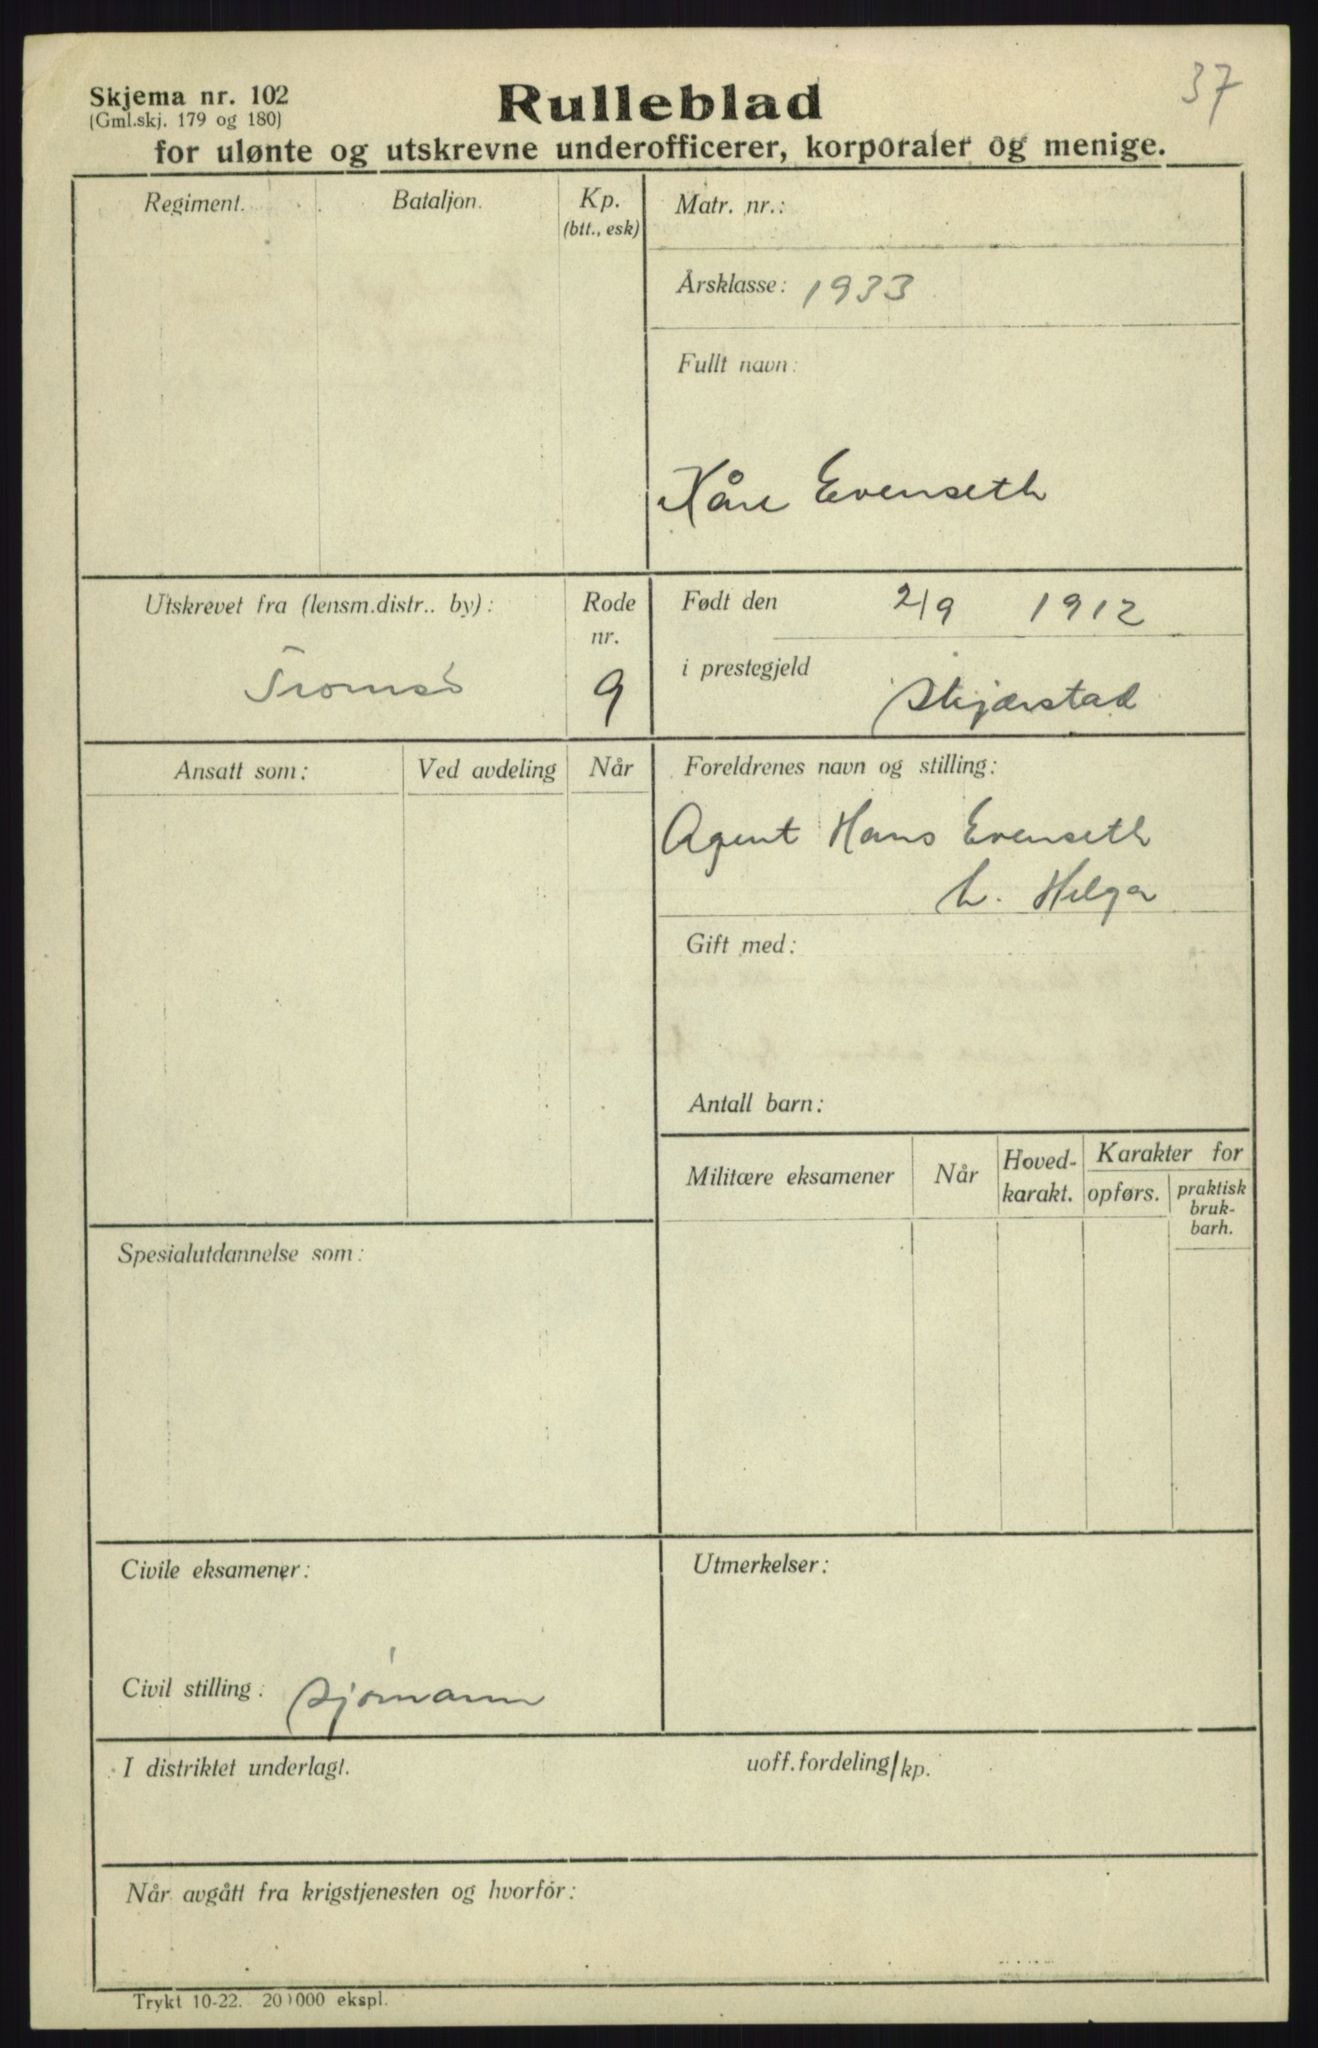 37
Skjema nr. 102
(Gml.skj. 179 og 180)
Rulleblad
for ulønte og utskrevne underofficerer, korporaler og menige.
Regiment.
Bataljon.
Kp.
(btt., esk)
Matr. nr.:
Årsklasse: 1933
Fullt navn:
Kåre Evenseth
Utskrevet fra (lensm.distr.. by):
Tromsö
Rode
nr.
9
Født den 2/9 1912
i prestegjeld Skjærstad
Ansatt som:
Ved avdeling
Når
Foreldrenes navn og stilling:
Agent Hans Evenseth
h. Helga
Gift med:
Antall barn:
Militære eksamener
Når
Hoved-
karakt.
Karakter for
opførs.
praktisk
bruk-
barh.
Spesialutdannelse som:
Civile eksamener:
Utmerkelser:
Civil stilling: sjömann
I distriktet underlagt.
uoff.fordeling/kp.
Når avgått fra krigstjenesten og hvorfor:
Trykt 10-22. 20 000 ekspl.